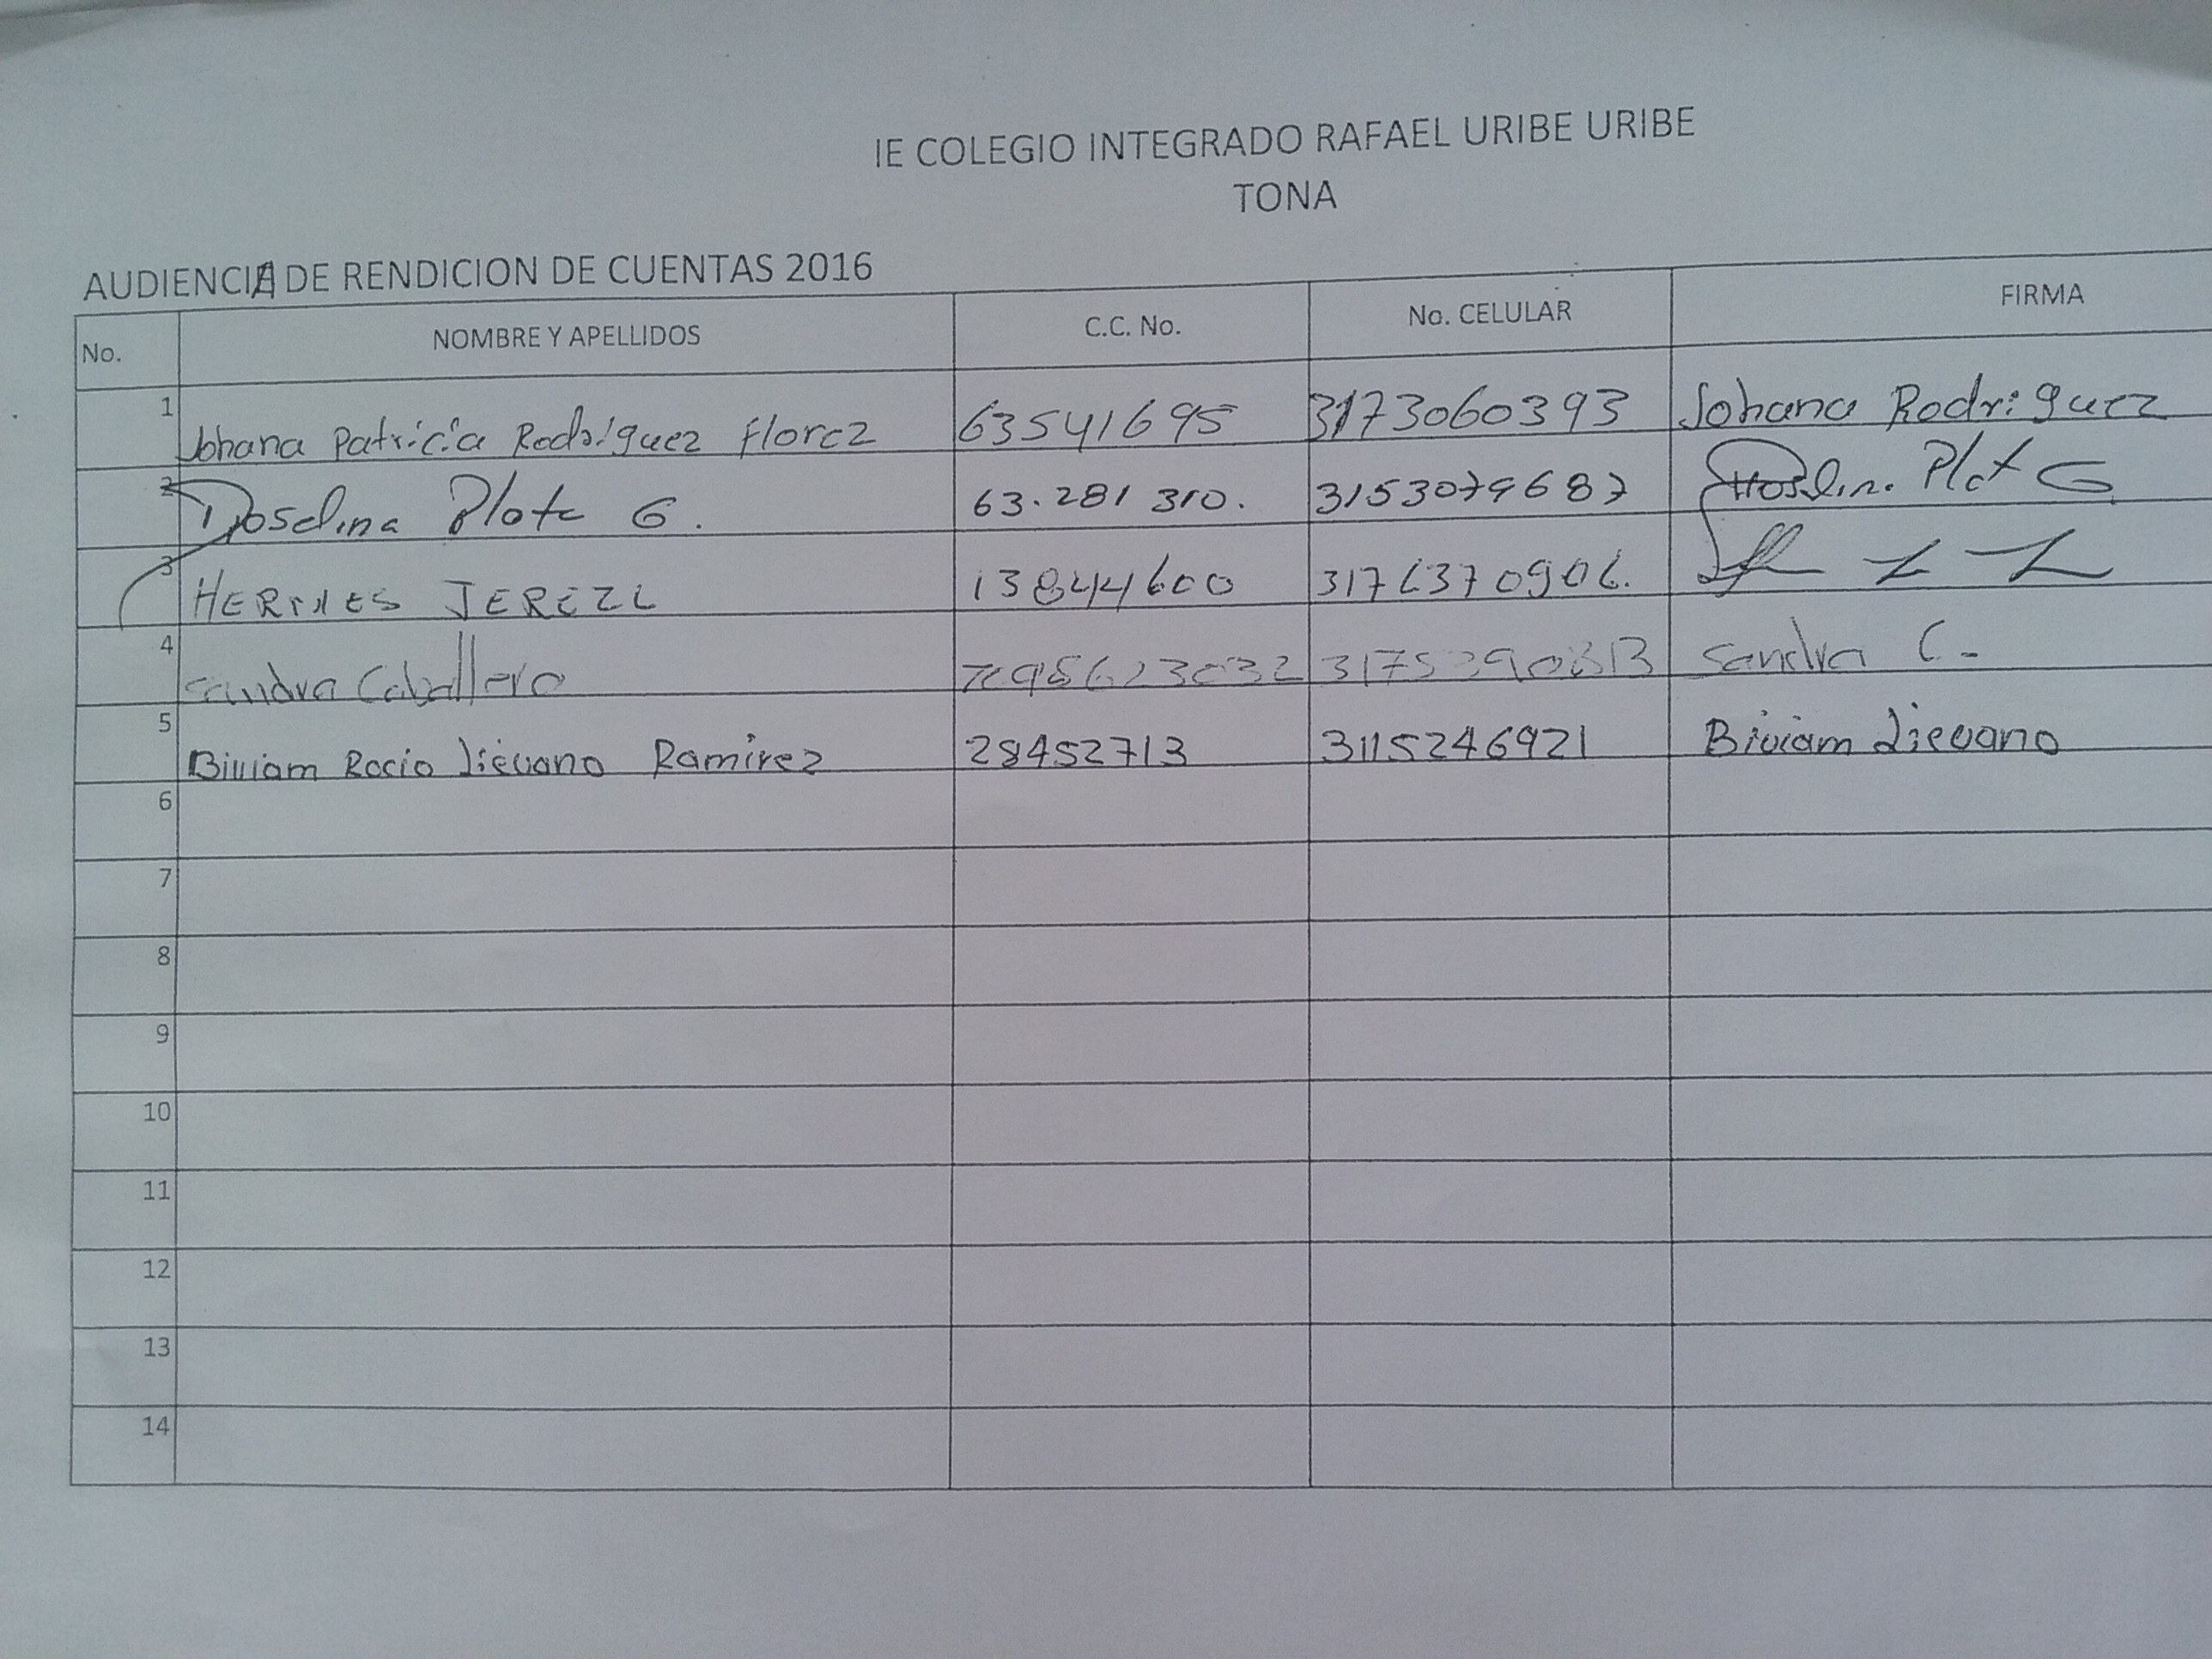 IE COLEGIO INTEGRADO RAFAEL URIBE URIBE
TONA
AUDIENCIA DE RENDICION DE CUENTAS 2016
No. NOMBRE Y APELLIDOS C.C. No. No. CELULAR FIRMA
1 Johana Patricia Rodriguez Florez 63541695 3173060393 Johana Rodriguez
2 Roselina Plata G. 63.281 310. 3153079687 G
3 HERMES JEREZ 13844600 3176370906.
4 Sandra Caballero Sandra C.
5 Biviam Rocio Lievano Ramirez 28452713 3115246921 Biviam Lievano
6
7
8
9
10
11
12
13
14